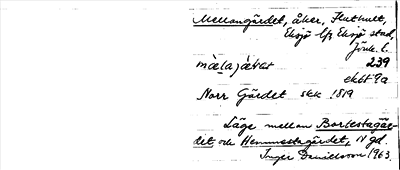 Mellangärdet, åker, Hulhult,
Eksjö lfs Eksjö stad,
Jönk. l.
239
ekbl 9a
Norr Gärdet skk 1819
Läge mellan Bortestagär-
det och Hemmestagärdet, N gd.
Inger Danielsson 1963.